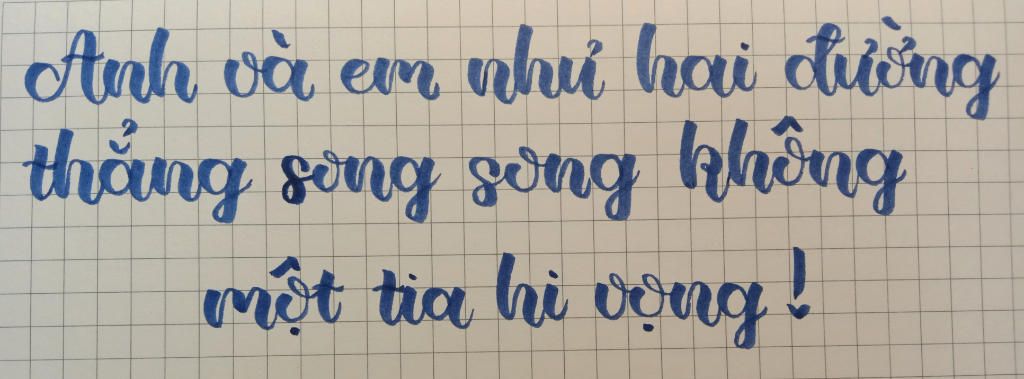 Anh và em như hai đường
thẳng song song không
một tia hi vọng!